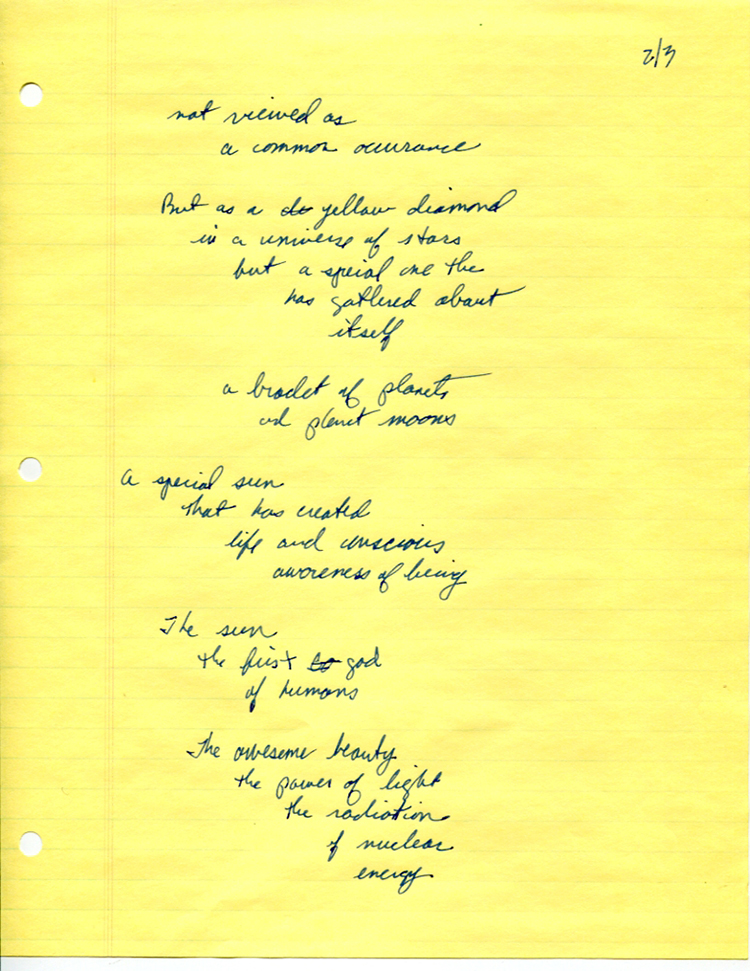 2/3
not viewed as
a common occurance
But as a do yellow diamond
in a universe of stars
but a special one the
has gathered about
itself
a bracelet of planets
and planet moons
A special sun
that has created
life and conscious
awareness of being
The sun
the first go god
of humans
The awesome beauty
the power of light
the radiation
of nuclear
energy